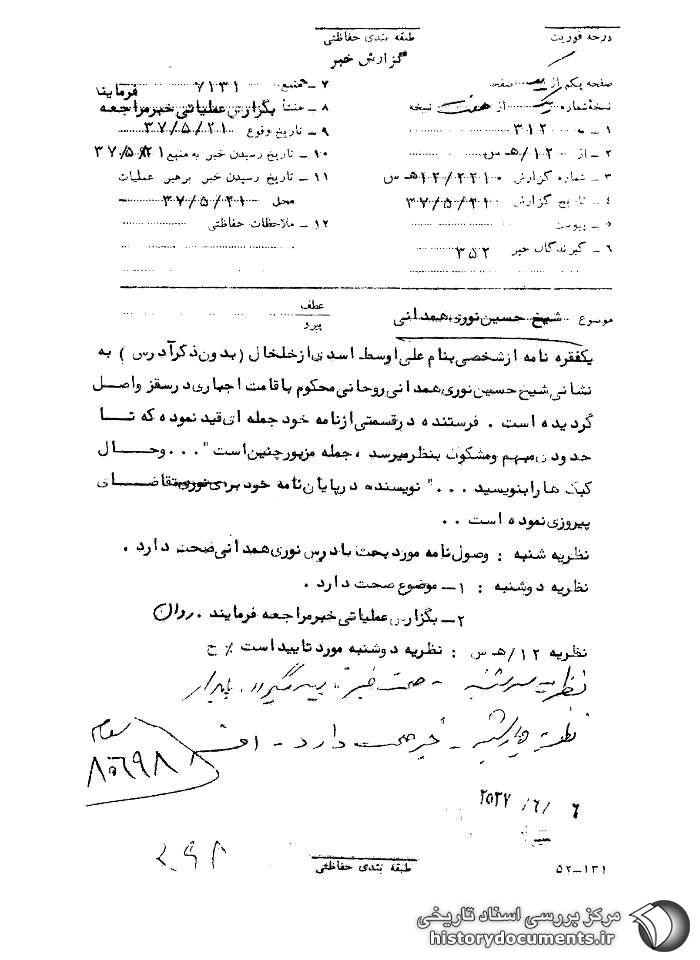 درجه فوریت
طبقه بندی حفاظتی
گزارش خبر
صفحه یکم از یک صفحه
نسخه شماره یک از هفت نسخه
۱ـ به ۳۱۲
۲ـ از ۱۲/هـ س
۳ـ شماره گزارش ۱۲/۲۲۱۰هـ س
۴ـ تاریخ گزارش ۳۷/۵/۲۱
۵ـ پیوست
۶ـ گیرندگان خبر ۳۵۲
۷ـ منبع ۷۱۳۱
۸ـ منشأ بگزارش عملیاتی خبرمراجعه فرمایند
۹ـ تاریخ وقوع ۳۷/۵/۲۱
۱۰ـ تاریخ رسیدن خبر به منبع ۳۷/۵/۲۱
۱۱ـ تاریخ رسیدن خبر برهبر عملیات
محل ۳۷/۵/۲۱
۱۲ـ ملاحظات حفاظتی
موضوع شیخ حسین نوری همدانی
عطف
پیرو
یکفقره نامه ازشخصی بنام علی اوسط اسدی ازخلخال (بدون ذکرآدرس) به
نشانی شیخ حسین نوری همدانی روحانی محکوم باقامت اجباری درسقز واصل
گردیده است . فرستنده درقسمتی ازنامه خود جمله ای قید نموده که تا
حدودی مبهم ومشکوک بنظرمیرسد ، جمله مزبورچنین است "... وحال
کبک ها رابنویسید ..." نویسنده درپایان نامه خود برای نوری تقاضای
پیروزی نموده است ..
نظریه شنبه : وصول نامه مورد بحث بادرس نوری همدانی صحت دارد .
نظریه دوشنبه : ۱ـ موضوع صحت دارد .
۲ـ بگزارش عملیاتی خبرمراجعه فرمایند . روان
نظریه ۱۲/هـ س : نظریه دوشنبه مورد تایید است ٪ ح
نظریه سه شنبه - صحت خبر
نظریه چهارشنبه - خبر صحت دارد -
۸۰۶۹۸
۲۵۳۷/۶/۶
طبقه بندی حفاظتی
۵۲-۱۳۱
مرکز بررسی اسناد تاریخی
historydocuments.ir